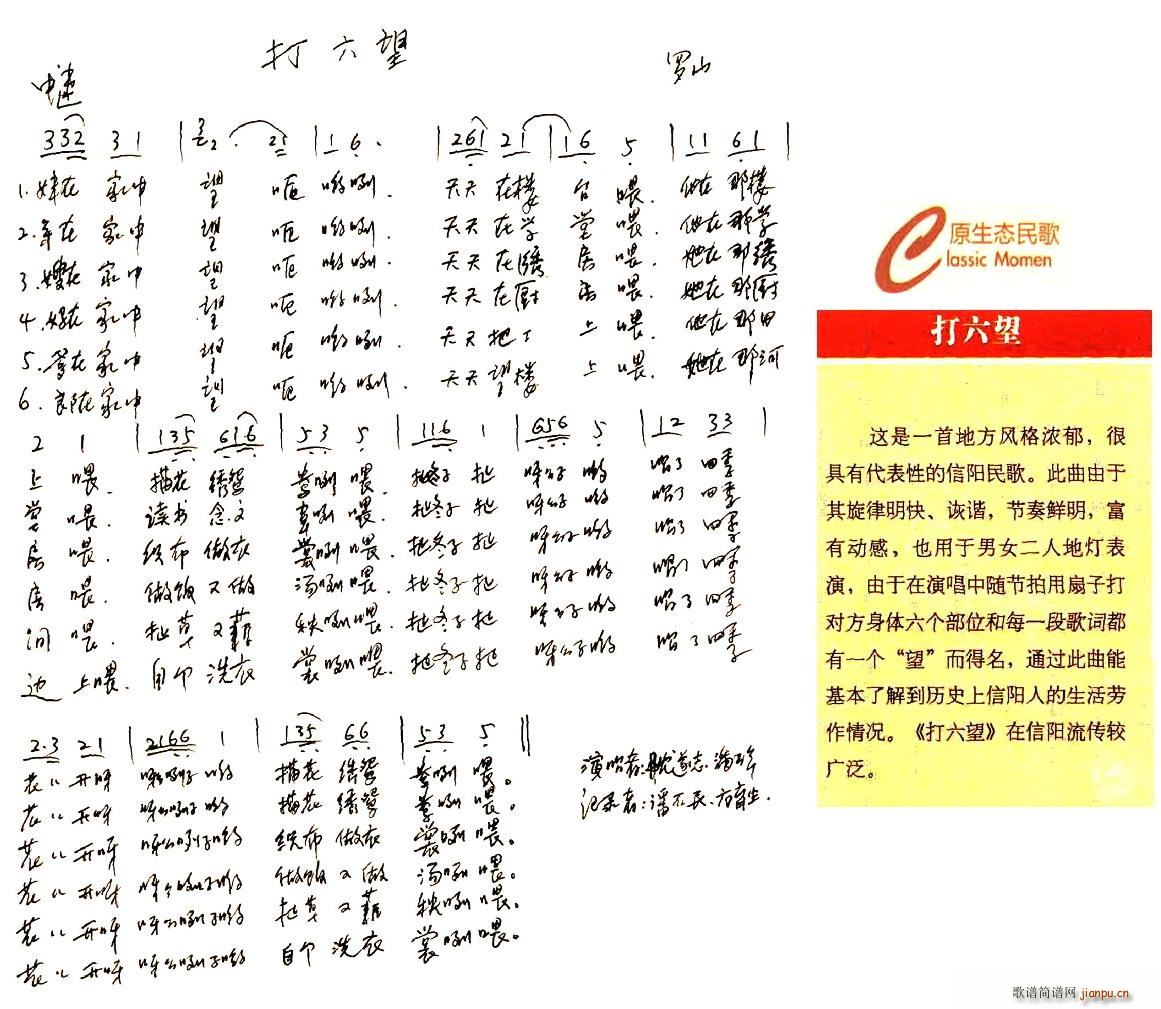 打六望
罗山
中速
332 31 | 32. 21 | 1 6. | 261 21 | 16 5 | 11 61 |
1. 在家中 望 呃 哟咧. 天天在楼 台 喂. 他在那楼
2. 在家中 望 呃 哟咧. 天天在学 堂 喂. 他在那学
3. 嫂在家中 望 呃 哟咧. 天天在绣 房 喂. 她在那绣
4. 在家中 望 呃 哟咧. 天天在厨 房 喂. 她在那厨
5. 爹在家中 望 呃 哟咧. 天天 上 喂. 他在那田
6. 在家中 望 呃 哟咧. 天天望楼 上 喂. 她在那河
2 1 | 135 616 | 53 5 | 116 1 | 656 5 | 12 33 |
上 喂. 描花 绣鸳 鸯咧 喂. 冬子 呀 哟 四季
堂 喂. 读书 念文 章咧 喂. 冬子 呀 哟 四季
房 喂. 织布 做衣 裳咧 喂. 冬子 呀 哟 四季
房 喂. 做饭 又做 汤咧 喂. 冬子 呀 哟 四季
间 喂. 草 又 秧咧 喂. 冬子 呀 哟 四季
边 上喂. 自个 洗衣 裳咧 喂. 冬子 呀 哟 四季
2.3 21 | 2166 1 | 135 66 | 53 5 ||
花儿 开呀 呀 咧子哟 描花 绣鸳 鸯咧 喂。
花儿 开呀 呀 咧子哟 描花 绣鸳 鸯咧 喂。
花儿 开呀 呀 咧子哟 织布 做衣 裳咧 喂。
花儿 开呀 呀 咧子哟 做饭 又做 汤咧 喂。
花儿 开呀 呀 咧子哟 草 又 秧咧 喂。
花儿 开呀 呀 咧子哟 自个 洗衣 裳咧 喂。
演唱者:
记录者:
原生态民歌
Classic Momen
打六望
这是一首地方风格浓郁，很
具有代表性的信阳民歌。此曲由于
其旋律明快、诙谐，节奏鲜明，富
有动感，也用于男女二人地灯表
演，由于在演唱中随节拍用扇子打
对方身体六个部位和每一段歌词都
有一个“望”而得名，通过此曲能
基本了解到历史上信阳人的生活劳
作情况。《打六望》在信阳流传较
广泛。
歌谱简谱网 jianpu.cn